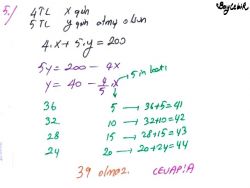 5./ 4TL x gün
5TL y gün almış olsun
4.x + 5.y = 200
5y = 200 - 4x
y = 40 - 4/5 x → 5 in katı
36 5 → 36+5=41
32 10 → 32+10=42
28 15 → 28+15=43
24 20 → 20+24=44
39 olmaz. CEVAP:A